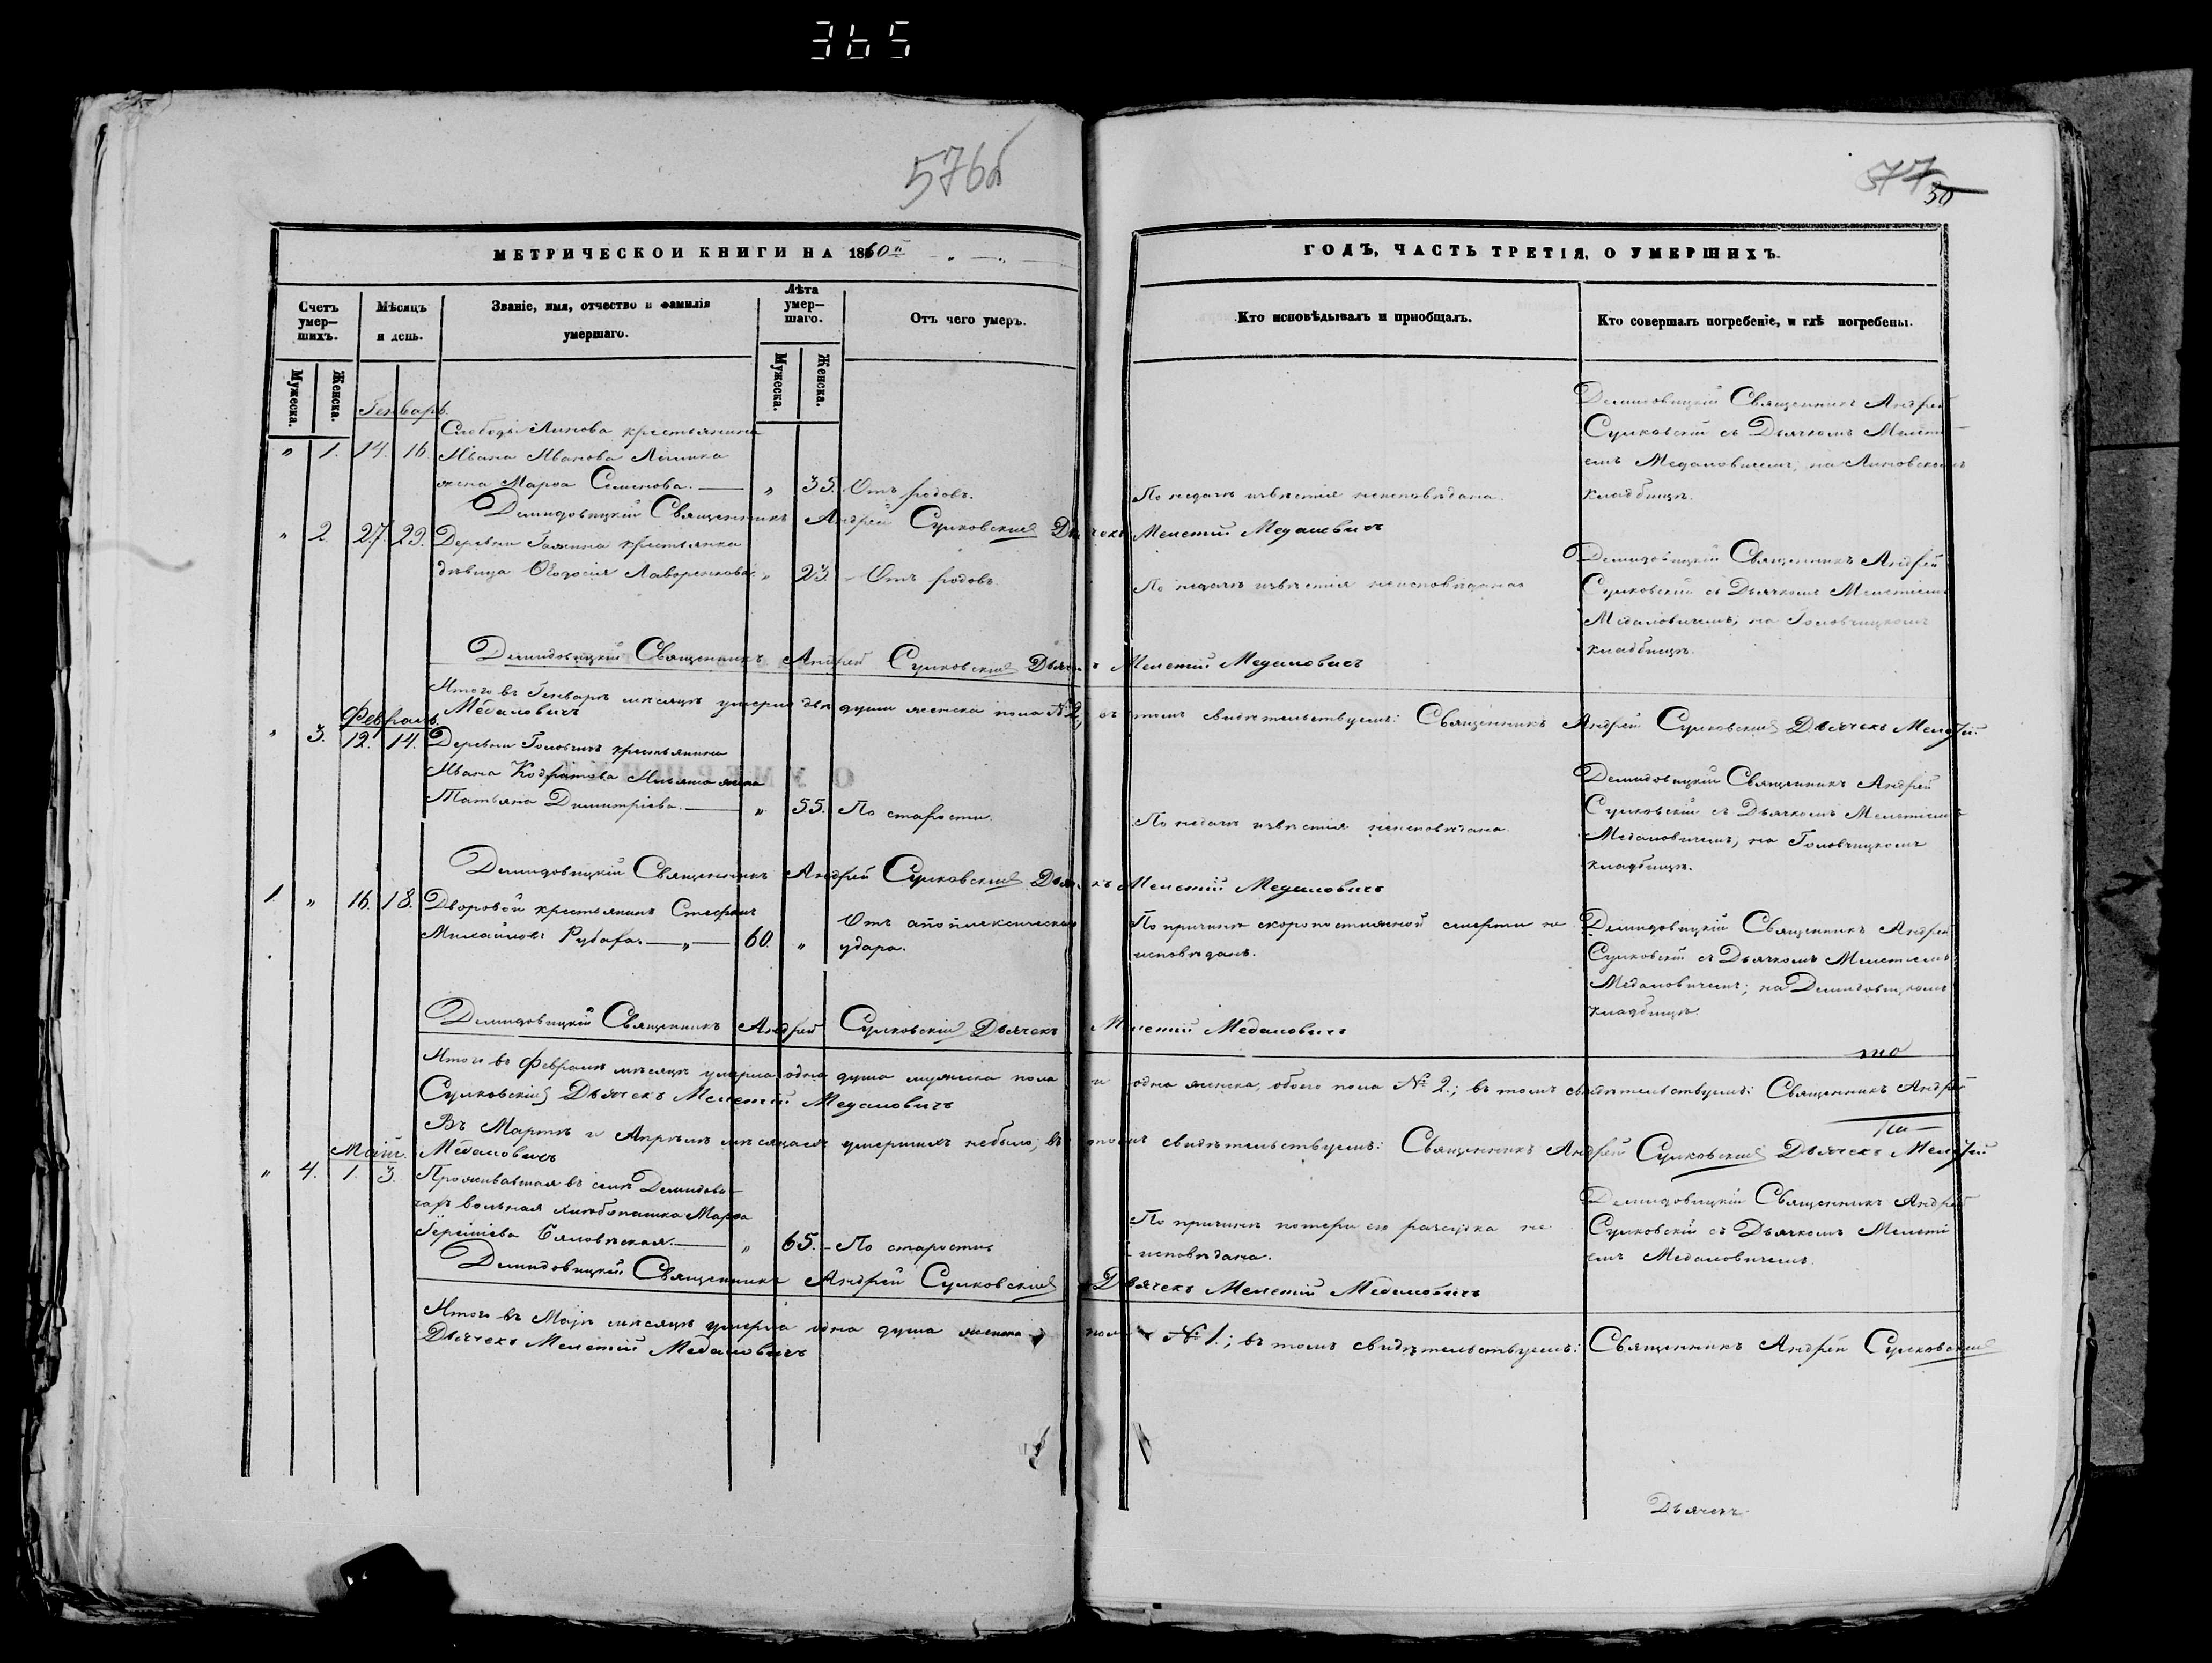 365
576б
577
50
МЕТРИЧЕСКОЙ КНИГИ НА 1860й
ГОДЪ, ЧАСТЬ ТРЕТІЯ, О УМЕРШИХЪ.
Счетъ умер–шихъ.
Мѣсяцъ и день.
Званіе, имя, отчество и фамилія умершаго.
Лѣта умер–шаго.
Отъ чего умеръ.
Кто исповѣдывалъ и пріобщалъ.
Кто совершалъ погребеніе, и гдѣ погребены.
Мужеска.
Женска.
Мужеска.
Женска.
Генварь.
" 1. 14. 16. Слободы Линова крестьянина
Ивана Иванова
жена Марѳа Семенова. " 35. Отъ родовъ.
По недачѣ извѣстія неисповѣдана.
Демидовицкій Священникъ Андрей
Сулковскій съ Дьячкомъ Мелеті–
емъ Медаловичемъ, на Линовскомъ
кладбищѣ.
Демидовицкій Священникъ Андрей Сулковскій Дьячекъ Мелетій Медаловичъ
" 2. 27. 29. Деревни крестьянка
дѣвица Ѳеодосія Лавренкова. " 23. Отъ родовъ.
По недачѣ извѣстія неисповѣдана
Демидовицкій Священникъ Андрей
Сулковскій съ Дьячкомъ Мелетіемъ
Медаловичемъ, на Головчицкомъ
кладбищѣ.
Демидовицкій Священникъ Андрей Сулковскій Дьячекъ Мелетій Медаловичъ
Итого въ Генварѣ мѣсяцѣ умерло двѣ души женска пола № 2, въ томъ свидѣтельствуемъ: Священникъ Андрей Сулковскій Дьячекъ Мелетій
Медаловичъ
Февраль.
" 3. 12. 14. Деревни Головчицъ крестьянина
Ивана Кодратова жена
Татьяна Димитріева. " 55. По старости.
По недачѣ извѣстія неисповѣдана
Демидовицкій Священникъ Андрей
Сулковскій съ Дьячкомъ Мелетіемъ
Медаловичемъ, на Головчицкомъ
кладбищѣ.
Демидовицкій Священникъ Андрей Сулковскій Дьячекъ Мелетій Медаловичъ
1 " 16. 18. Дворовой крестьянинъ Стефанъ
Михайловъ 60. " Отъ апоплексическаго
удара.
По причинѣ скоропостижной смерти не
исповѣданъ.
Демидовицкій Священникъ Андрей
Сулковскій съ Дьячкомъ Мелетіемъ
Медаловичемъ; на Демидовицкомъ
кладбищѣ.
Демидовицкій Священникъ Андрей Сулковскій Дьячекъ Мелетій Медаловичъ
Итого въ Февралѣ мѣсяцѣ умерла одна душа мужеска пола и одна женска, обоего пола № 2.; въ томъ свидѣтельствуемъ: Священникъ Андрей
Сулковскій Дьячекъ Мелетій Медаловичъ
Въ Мартѣ и Апрѣлѣ мѣсяцахъ умершихъ небыло; въ томъ свидѣтельствуемъ: Священникъ Андрей Сулковскій Дьячекъ Мелетій
Медаловичъ
Маій.
" 4. 1. 3. Проживавшая въ селѣ Демидови–
чахъ вольная хлѣбопашка Марѳа
" 65. По старости
По причинѣ потери ею разсудка не
исповѣдана.
Демидовицкій Священникъ Андрей
Сулковскій съ Дьячкомъ Мелеті
емъ Медаловичемъ.
Демидовицкій Священникъ Андрей Сулковскій Дьячекъ Мелетій Медаловичъ
Итого въ Маіѣ мѣсяцѣ умерла одна душа женска пола № 1.; въ томъ свидѣтельствуемъ: Священникъ Андрей Сулковскій
Дьячекъ Мелетій Медаловичъ
Дьячекъ